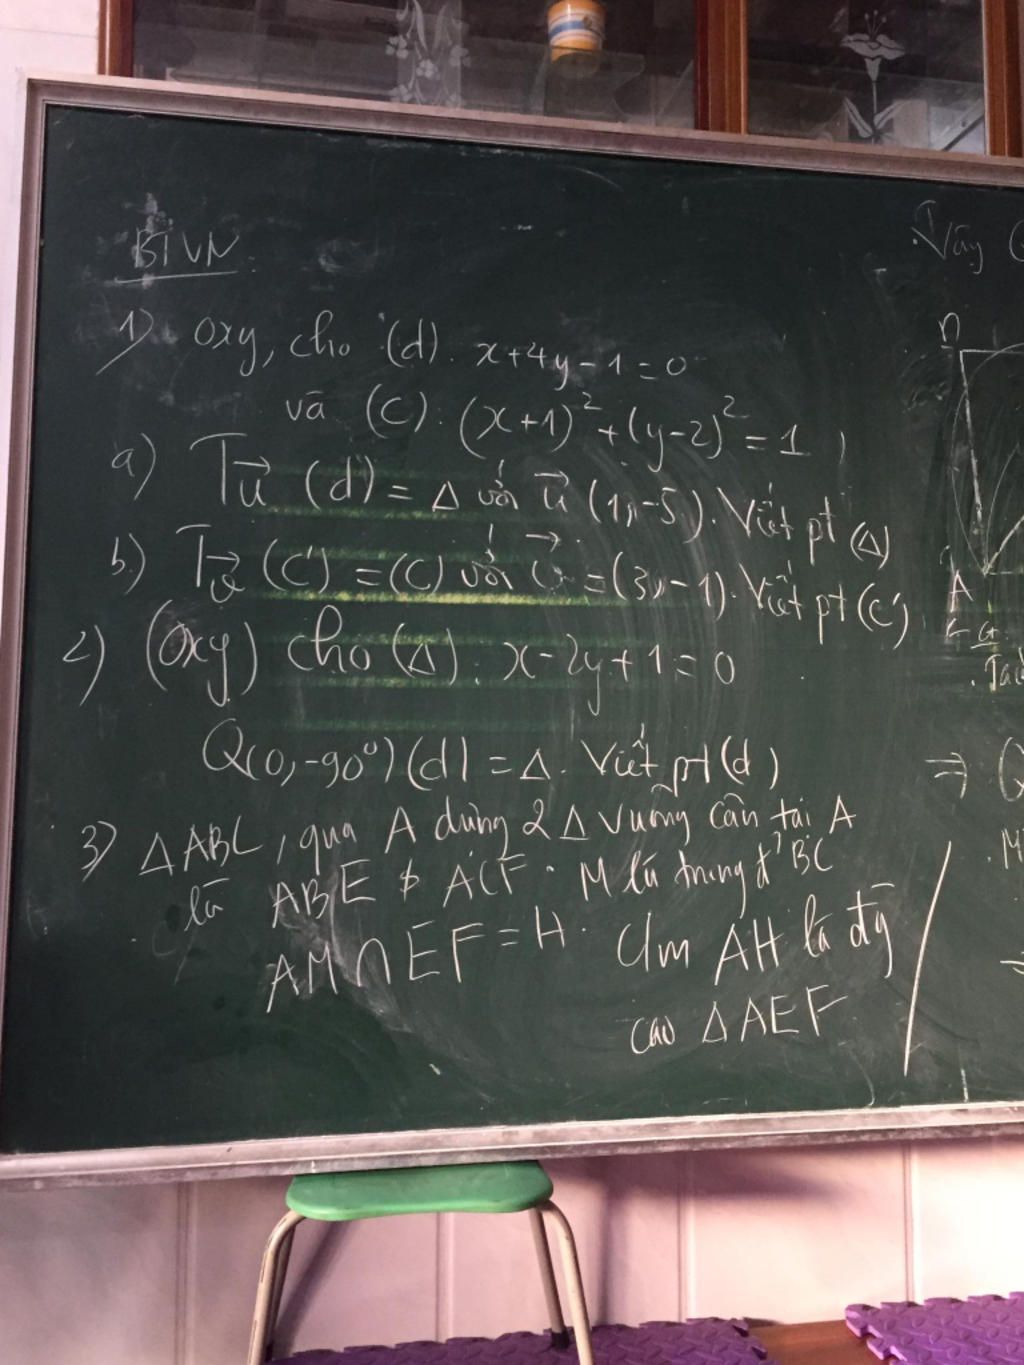 BTVN
1) Oxy, cho (d). x+4y-1=0
và (C). (x+1)² + (y-2)² = 1
a) Tu⃗ (d) = Δ với u⃗ (1,-5). Viết pt (Δ)
b) Tv⃗ (C') = (C) với v⃗ = (3,-1). Viết pt (C')
2) (Oxy) cho (Δ). x-2y+1=0
Q(0,-90°)(d) = Δ. Viết pt (d)
3) ΔABC, qua A dựng 2 Δ vuông cân tại A
là ABE & ACF. M là trung đ' BC
AM ∩ EF = H. Cm AH là đg
cao ΔAEF
Vậy
D
A
⇒
M